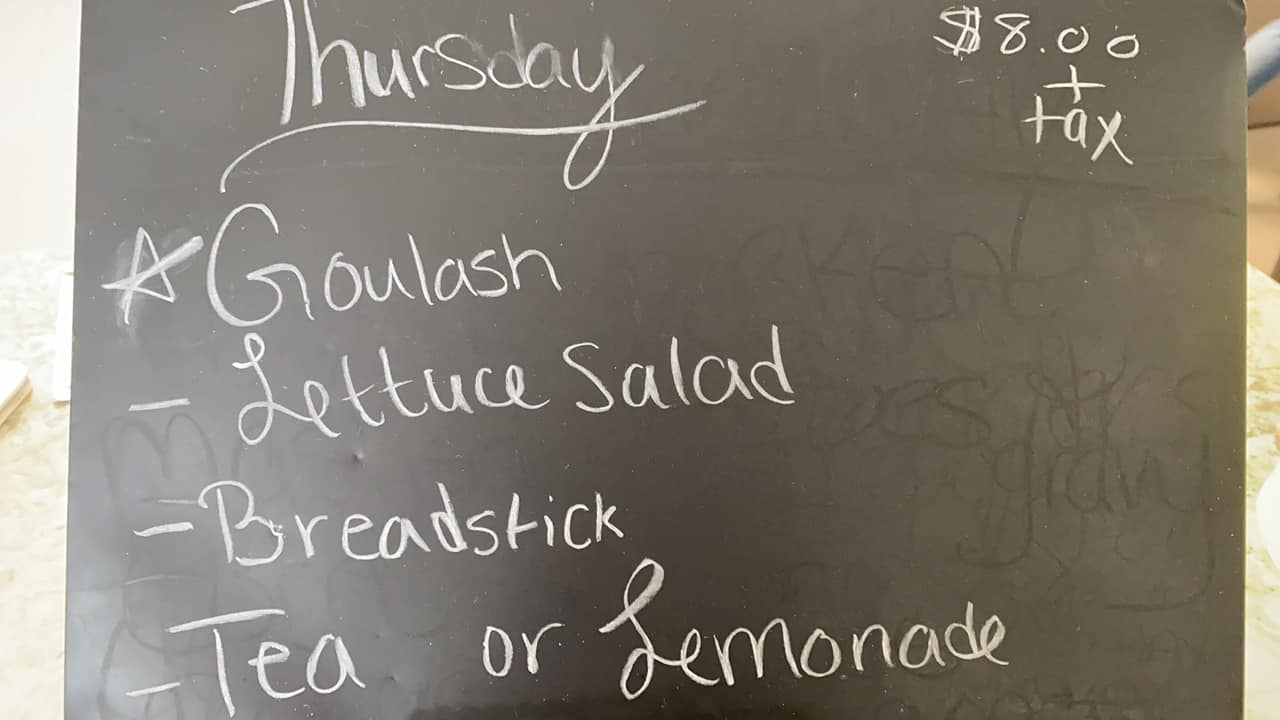 Thursday
$8.00
+
tax
☆ Goulash
- Lettuce Salad
- Breadstick
- Tea or Lemonade